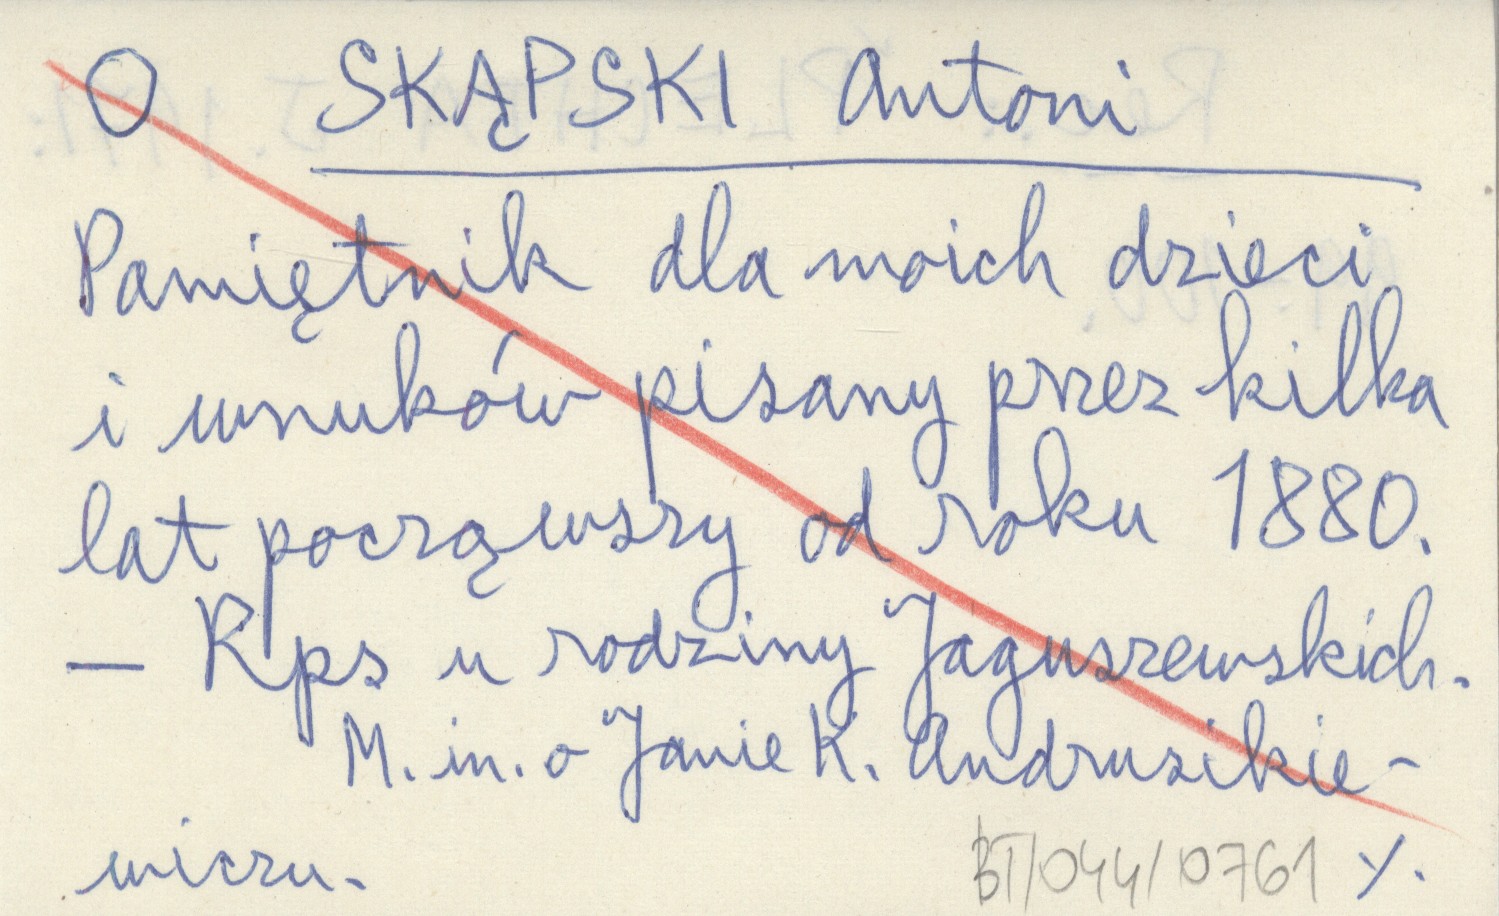 O SKĄPSKI Antoni
Pamiętnik dla moich dzieci
i wnuków pisany przez kilka
lat począwszy od roku 1880.
— Rps u rodziny Jaguszewskich.
M. in. o Janie K. Andrusikie-
wiczu.
BT/044/0761 y.